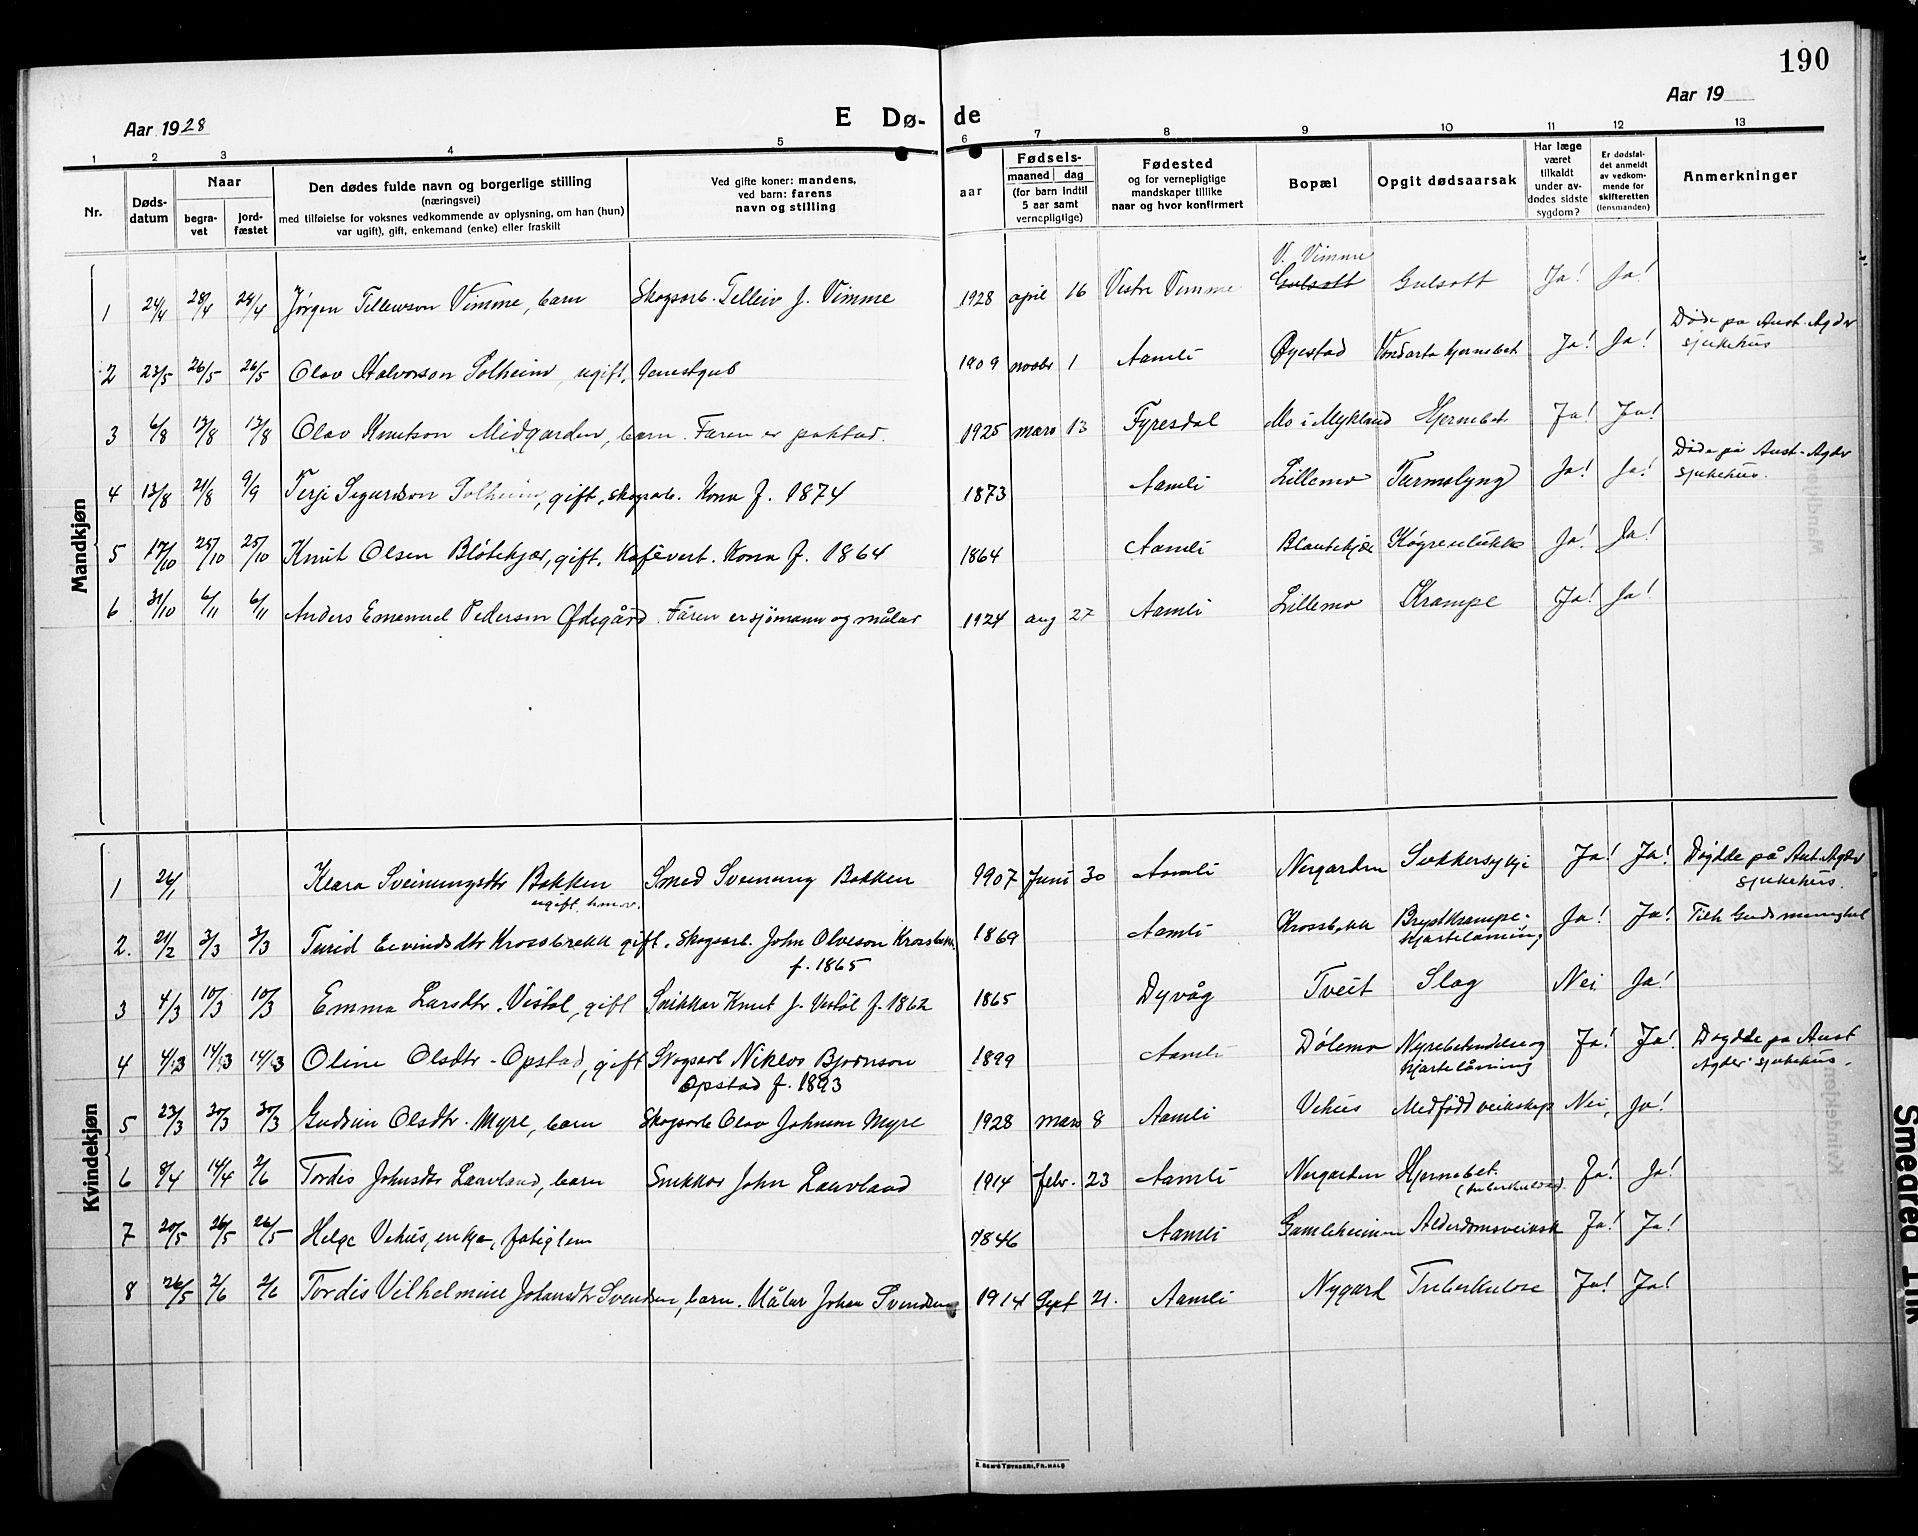 190
Aar 1928
E Dø- de
Aar 19
1 2 3 4 5 6 7 8 9 10 11 12 13
Nr.
Døds-
datum
Naar
begra-
vet
jord-
fæstet
Den dødes fulde navn og borgerlige stilling
(næringsvei)
med tilføielse for voksnes vedkommende av oplysning, om han (hun)
var ugift), gift, enkemand (enke) eller fraskilt
Ved gifte koner: mandens,
ved barn: farens
navn og stilling
aar
Fødsels-
maaned dag
(for barn indtil
5 aar samt
vernepligtige)
Fødested
og for vernepligtige
mandskaper tillike
naar og hvor konfirmert
Bopæl
Opgit dødsaarsak
Har læge
været
tilkaldt
under av-
dødes sidste
sygdom?
Er dødsfal-
det anmeldt
av vedkom-
mende for
skifteretten
(lensmanden)
Anmerkninger
Mandkjøn
V. Vimme
1 24/4 28/4 28/4 Jørgen Tellevson Vimme, barn Skogsarb. Telleiv J. Vimme 1928 april 16 Vestre Vimme Gulsott Gulsott Ja! Ja!
Døde på Aust-Agder
sjukehus
2 23/5 26/5 26/5 Olav Halvorson Solheim, ugift, 1909 novbr 1 Aamli Øyestad hjernebet Ja! Ja!
3 6/8 12/8 12/8 Olav Knutson Midgarden, barn. Faren er 1925 mars 13 Fyresdal Mo i Mykland Hjernebet Ja! Ja!
Døde på Aust-Agder
sjukehus.
4 12/8 21/8 9/9 Terje Sigurdson Solheim, gift, skogsarb. Kona f. 1874 1873 Aamli Lillemo Tarmslyng Ja! Ja!
5 17/10 25/10 25/10 Knut Olsen Bløtekjær, gift, Kafévert. Kona f. 1864 1864 Aamli Ja! Ja!
6 31/10 6/11 6/11 Anders Emanuel Pederson Ødegård. Faren er sjømann og målar 1924 aug 27 Aamli Lillemo Krampe Ja! Ja!
Kvindekjøn
1 26/1 Klara Sveinungsdtr Bakken Smed Sveinung Bakken 1907 Juni 30 Aamli Nergarden Sukkersykje Ja! Ja! Døydde på Aust-Agder
ugift
sjukehus.
2. 21/2 3/3 3/3 Turid Eivindsdtr Krossbekk gift. Skogsarb. John Olveson Krossbekk 1869 Aamli Krossbekk Brystkrampe- Ja! Ja!
f. 1865
hjartelaming
3 4/3 10/3 10/3 Emma Larsdtr. Vistøl, gift Snikkar Knut J. Vistøl f. 1862 1865 Dyvåg Tveit Slag Nei Ja!
4 4/3 14/3 14/3 Oline Olsdtr. Opstad, gift Skogsarb Niklos Bjørnson 1899 Aamli Dølemo Nyrebetendelse og Ja! Ja! Døydde på Aust
Opstad f. 1893
hjartelåming
Agder sjukehus.
5 23/3 30/3 30/3 Gudrun Olsdtr. Myre, barn Skogsarb Olav Johnson Myre 1928 mars 8 Aamli Vehus Medfødd veikskap Nei, Ja!
6 8/4 14/4 2/6 Tordis Johnsdtr Lauvland, barn Snikkar John Lauvland 1914 febr. 23 Aamli Nergarden Hjernebet. Ja! Ja!
(tuberkuløs).
7 20/5 26/5 26/5 Helge Vehus, enkja, fatiglem 1846 Aamli Gamleheimen Alderdomsveiksk Ja! Ja!
8 26/5 2/6 2/6 Tordis Vilhelmine Johansdtr Svendsen, barn. Målar Johan Svendsen 1914 Sept 21. Aamli Nygard Tuberkulose Ja! Ja!
Smeared Ink